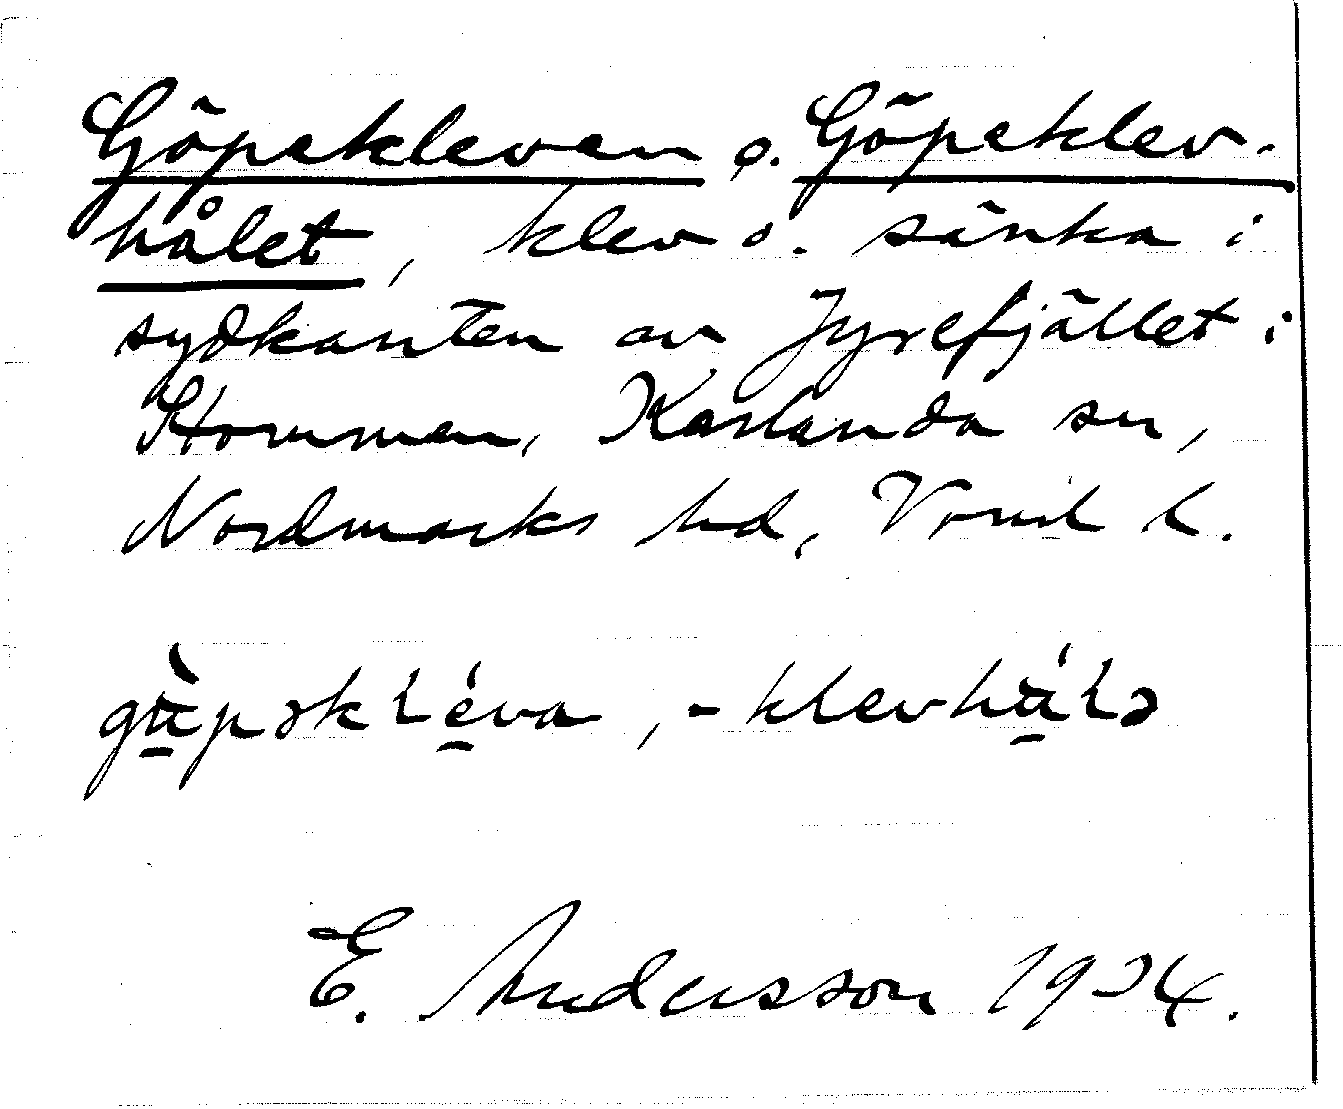 Göpekleven o. Göpeklev-
hålet, klev o. sänka i
sydkanten av Jyrefjället i
Stommen, Karlanda sn,
Nordmarks hd, Vrml l.
E. Andersson 1934.